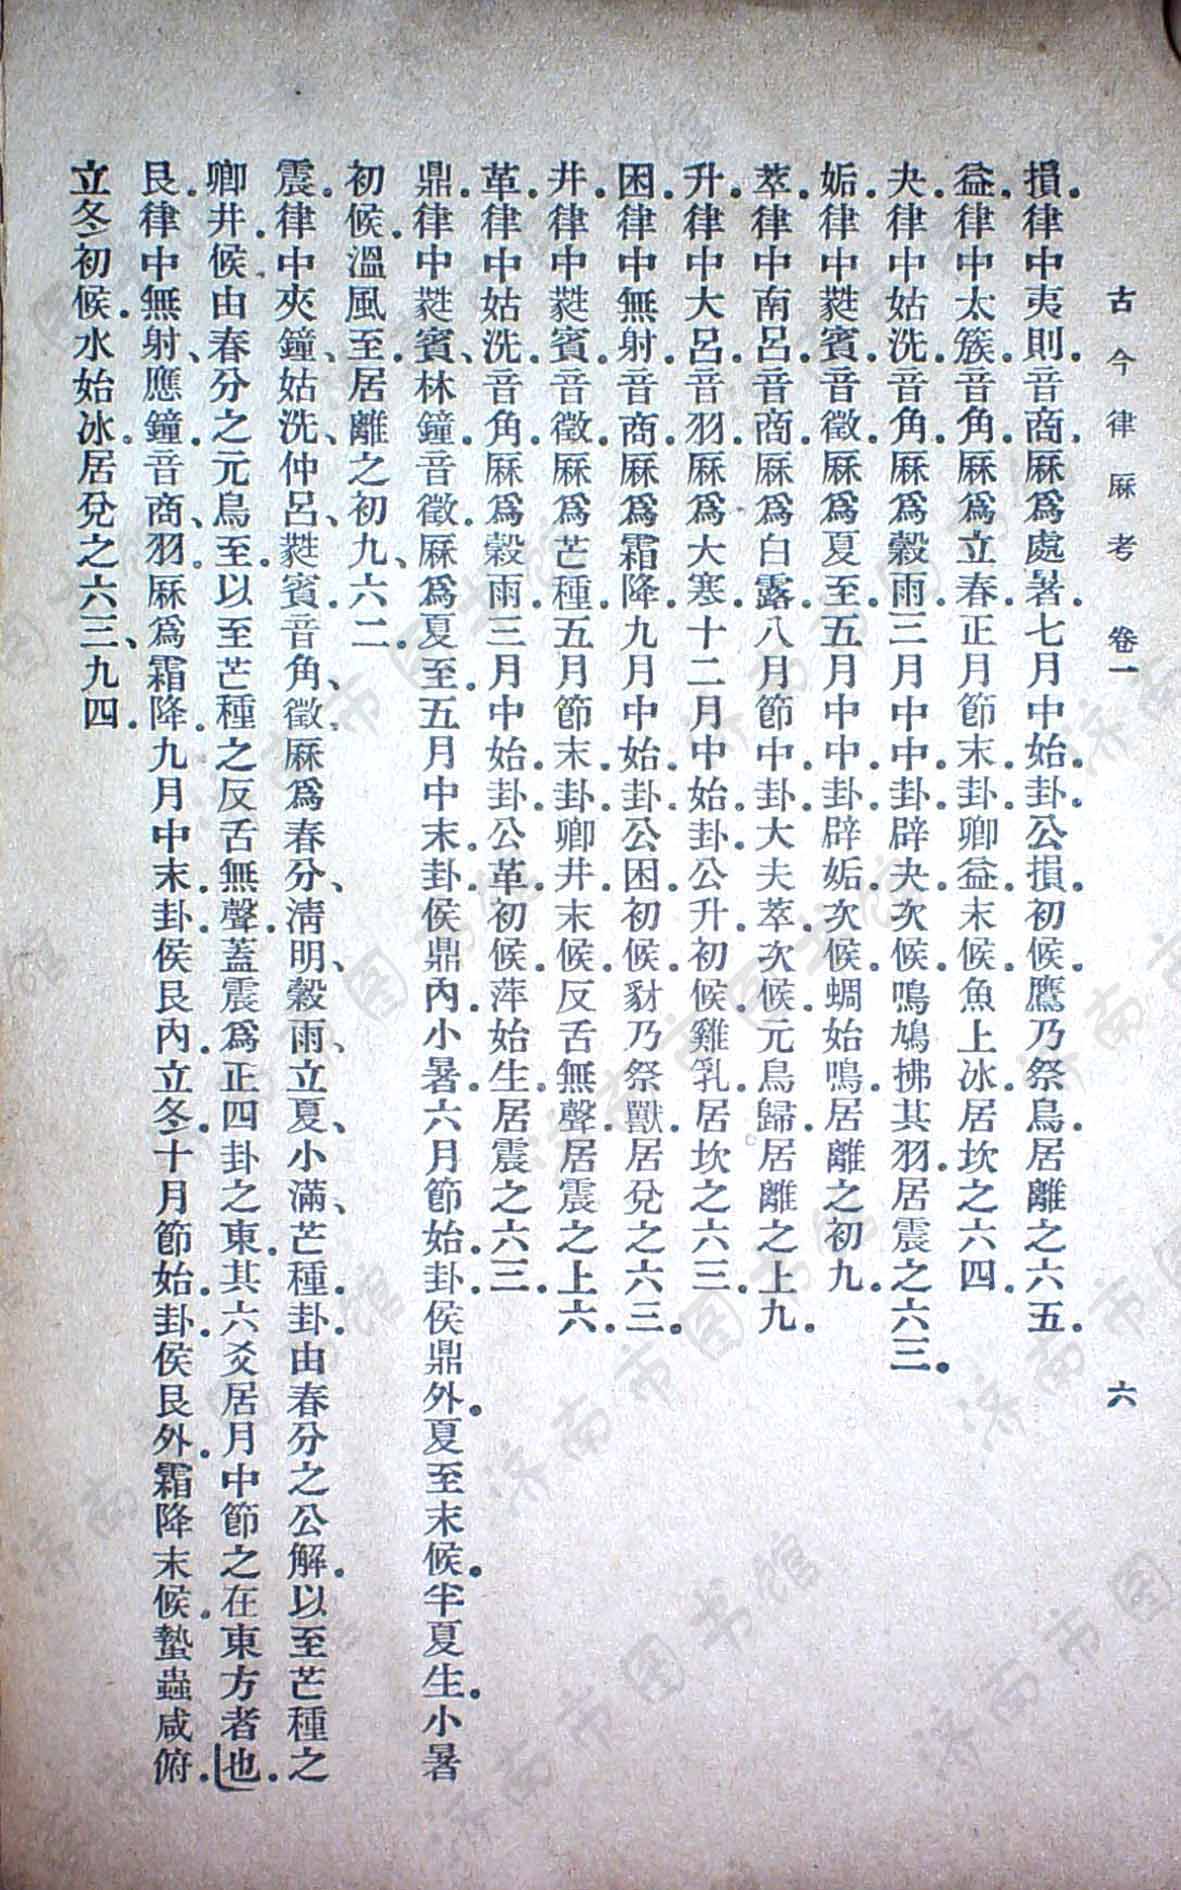 古今律厤考 卷一 六
損。律中夷則。音商。厤爲處暑。七月中。始卦。公損。初候。鷹乃祭鳥。居離之六五。
益。律中太簇。音角。厤爲立春。正月節。末卦。卿益。末候。魚上冰。居坎之六四。
夬。律中姑洗。音角。厤爲穀雨。三月中。中卦。辟夬。次候。鳴鳩拂其羽。居震之六三。
姤。律中蕤賓。音徵。厤爲夏至。五月中。中卦。辟姤。次候。蜩始鳴。居離之初九。
萃。律中南呂。音商。厤爲白露。八月節。中卦。大夫萃。次候。元鳥歸。居離之上九。
升。律中大呂。音羽。厤爲大寒。十二月中。始卦。公升。初候。雞乳。居坎之六三。
困。律中無射。音商。厤爲霜降。九月中。始卦。公困。初候。豺乃祭獸。居兌之六三。
井。律中蕤賓。音徵。厤爲芒種。五月節。末卦。卿井。末候。反舌無聲。居震之上六。
革。律中姑洗。音角。厤爲穀雨。三月中。始卦。公革。初候。萍始生。居震之六三。
鼎。律中蕤賓、林鐘。音徵。厤爲夏至。五月中。末卦。侯鼎內。小暑。六月節。始卦。侯鼎外。夏至末候。半夏生。小暑
初候。溫風至。居離之初九、六二。
震。律中夾鐘、姑洗、仲呂、蕤賓。音角、徵。厤爲春分、淸明、穀雨、立夏、小滿、芒種。卦。由春分之公解。以至芒種之
卿井。候。由春分之元鳥至。以至芒種之反舌無聲。蓋震爲正四卦之東。其六爻居月中節之在東方者也。
艮。律中無射、應鐘。音商、羽。厤爲霜降。九月中。末卦。侯艮內。立冬。十月節。始卦。侯艮外。霜降末候。蟄蟲咸俯。
立冬初候。水始冰。居兌之六三、九四。